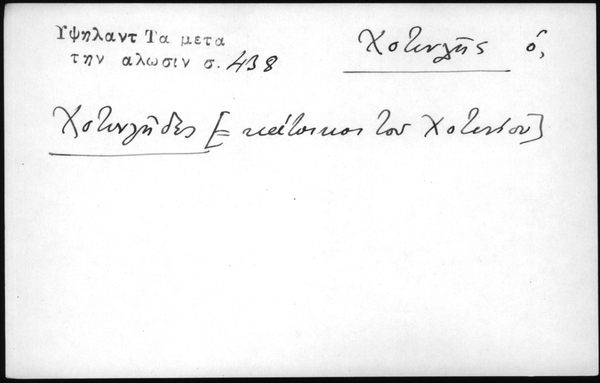 Υψηλαντ Τα μετα
την αλωσιν σ. 438
Χοτινλῆς ὁ,
Χοτινλῆδες [= κάτοικοι του Χοτινίου]